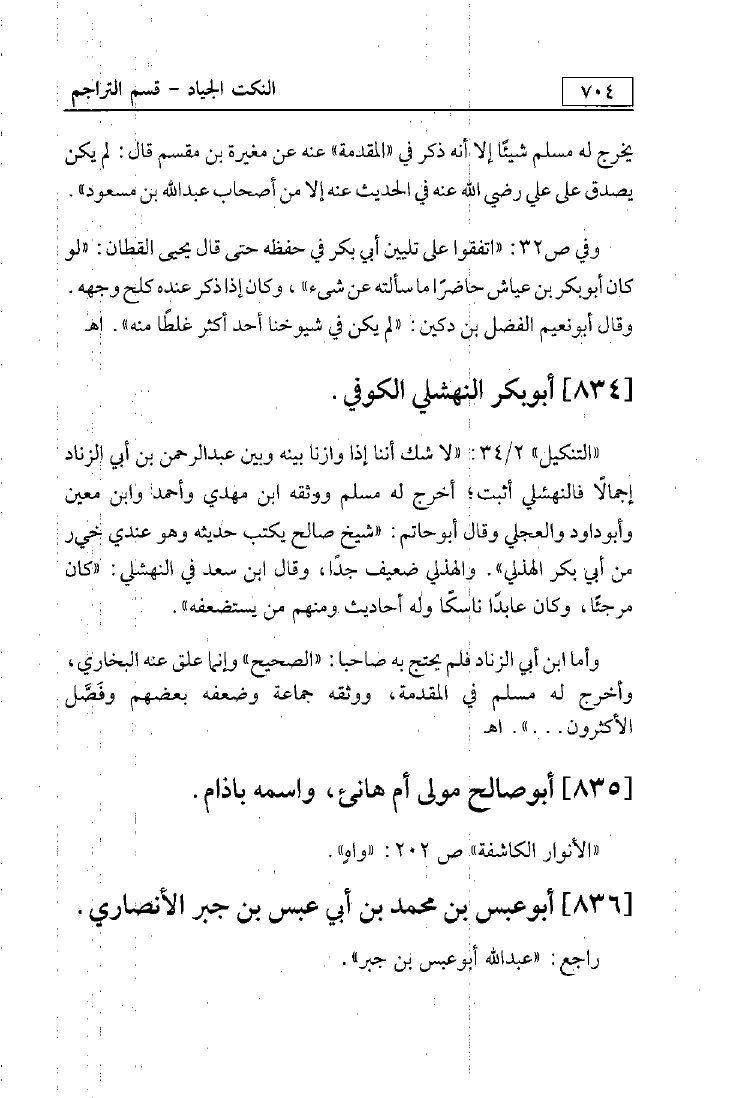 ٧٠٤
النكت الجياد - قسم التراجم
يخرج له مسلم شيئًا إلا أنه ذكر في «المقدمة» عنه عن مغيرة بن مقسم قال: لم يكن
يصدق على علي رضي الله عنه في الحديث عنه إلا من أصحاب عبدالله بن مسعود».
وفي ص٣٢: «اتفقوا على تليين أبي بكر في حفظه حتى قال يحيى القطان: «لو
كان أبوبكر بن عياش حاضرًا ما سألته عن شيء»، وكان إذا ذكر عنده كلح وجهه.
وقال أبونعيم الفضل بن دكين: «لم يكن في شيوخنا أحد أكثر غلطًا منه». اهـ
[٨٣٤] أبوبكر النهشلي الكوفي.
«التنكيل» ٣٤/٢: «لا شك أننا إذا وازنا بينه وبين عبدالرحمن بن أبي الزناد
إجمالًا فالنهشلي أثبت؛ أخرج له مسلم ووثقه ابن مهدي وأحمد وابن معين
وأبوداود والعجلي وقال أبوحاتم: «شيخ صالح يكتب حديثه وهو عندي خير
من أبي بكر الهذلي». والهذلي ضعيف جدًا، وقال ابن سعد في النهشلي: «كان
مرجئًا، وكان عابدًا ناسكًا وله أحاديث ومنهم من يستضعفه».
وأما ابن أبي الزناد فلم يحتج به صاحبا: «الصحيح» وإنما علق عنه البخاري،
وأخرج له مسلم في المقدمة، ووثقه جماعة وضعفه بعضهم وفَصَّل
الأكثرون...». اهـ
[٨٣٥] أبوصالح مولى أم هانئ، واسمه باذام.
«الأنوار الكاشفة» ص ٢٠٢: «واهٍ».
[٨٣٦] أبوعبس بن محمد بن أبي عبس بن جبر الأنصاري.
راجع: «عبدالله أبوعبس بن جبر».